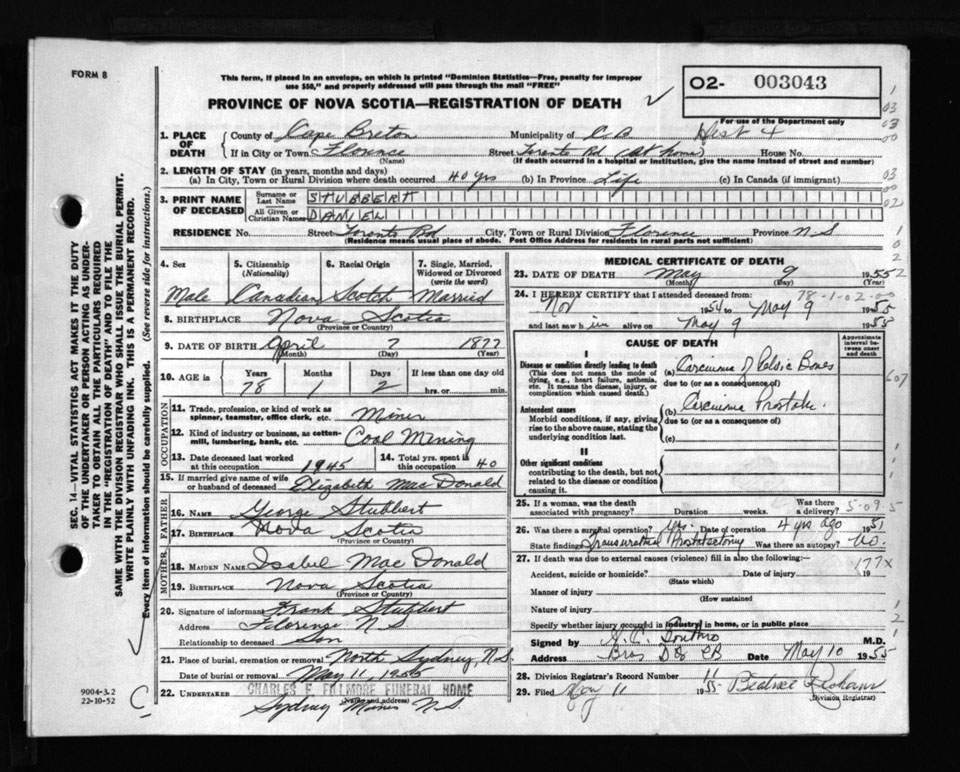 FORM 8
This form, if placed in an envelope, on which is printed "Dominion Statistics—Free, penalty for improper
use $50," and properly addressed will pass through the mail "FREE"
O2- 003043
For use of the Department only
PROVINCE OF NOVA SCOTIA—REGISTRATION OF DEATH
1. PLACE OF DEATH County of Cape Breton Municipality of C.B Dist 4
If in City or Town Florence (Name) Street Toronto Rd (At home) House No.
(If death occurred in a hospital or institution, give the name instead of street and number)
2. LENGTH OF STAY (in years, months and days)
(a) In City, Town or Rural Division where death occurred 40 yrs (b) In Province Life (c) In Canada (if immigrant)
3. PRINT NAME OF DECEASED Surname or Last Name STUBBERT
All Given or Christian Names DANIEL
RESIDENCE No. Street Toronto Rd City, Town or Rural Division Florence Province N.S
(Residence means usual place of abode. Post Office Address for residents in rural parts not sufficient)
4. Sex Male
5. Citizenship (Nationality) Canadian
6. Racial Origin Scotch
7. Single, Married, Widowed or Divorced (write the word) Married
8. BIRTHPLACE Nova Scotia
(Province or Country)
9. DATE OF BIRTH April 7 1877
(Month) (Day) (Year)
10. AGE in Years Months Days If less than one day old
78 1 2 hrs. or min.
OCCUPATION
11. Trade, profession, or kind of work as spinner, teamster, office clerk, etc. Miner
12. Kind of industry or business, as cotton-mill, lumbering, bank, etc. Coal Mining
13. Date deceased last worked at this occupation 1945
14. Total yrs. spent in this occupation 40
15. If married give name of wife or husband of deceased Elizabeth Mac Donald
FATHER
16. NAME George Stubbert
17. BIRTHPLACE Nova Scotia
(Province or Country)
MOTHER
18. MAIDEN NAME Isabel Mac Donald
19. BIRTHPLACE Nova Scotia
(Province or Country)
20. Signature of informant Frank Stubbert
Address Florence N S
Relationship to deceased Son
21. Place of burial, cremation or removal North Sydney, N.S.
Date of burial or removal May 11, 1955
22. UNDERTAKER CHARLES F. FILLMORE FUNERAL HOME
(Name and address)
Sydney Mines N S
MEDICAL CERTIFICATE OF DEATH
23. DATE OF DEATH May 9 1955
(Month) (Day) (Year)
78-1-02-00
24. I HEREBY CERTIFY that I attended deceased from:
Nov 1954 to May 9 1955
and last saw h im alive on May 9 1955
CAUSE OF DEATH
Approximate interval between onset and death
I
Disease or condition directly leading to death
(This does not mean the mode of dying, e.g., heart failure, asthenia, etc. It means the disease, injury, or complication which caused death.)
(a) Carcinoma of Pelvic Bones
due to (or as a consequence of)
Antecedent causes
Morbid conditions, if any, giving rise to the above cause, stating the underlying condition last.
(b) Carcinoma Prostate
due to (or as a consequence of)
(c)
II
Other significant conditions
contributing to the death, but not related to the disease or condition causing it.
25. If a woman, was the death associated with pregnancy? Duration weeks. Was there a delivery?
5-09-5
26. Was there a surgical operation? Yes. Date of operation 4 yrs ago 1951
State findings Transurethral Prostatectomy Was there an autopsy? No.
27. If death was due to external causes (violence) fill in also the following:—
177X
Accident, suicide or homicide? Date of injury 19
(State which)
Manner of injury
(How sustained)
Nature of injury
Specify whether injury occurred in industry, in home, or in public place
Signed by M.D.
Address Bras D'Or CB Date May 10 1955
28. Division Registrar's Record Number 11
29. Filed May 11 1955 Beatrice
(Division Registrar)
SEC. 14—VITAL STATISTICS ACT MAKES IT THE DUTY
OF THE UNDERTAKER OR PERSON ACTING AS UNDER-
TAKER TO OBTAIN ALL THE PARTICULARS REQUIRED
IN THE "REGISTRATION OF DEATH" AND TO FILE THE
SAME WITH THE DIVISION REGISTRAR WHO SHALL ISSUE THE BURIAL PERMIT.
WRITE PLAINLY WITH UNFADING INK. THIS IS A PERMANENT RECORD.
Every item of information should be carefully supplied. (See reverse side for instructions.)
9004-3.2
22-10-52
C